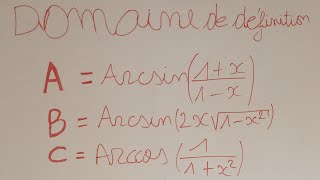 DOMaine de définition
A = Arcsin(\frac{1+x}{1-x})
B = Arcsin(2x\sqrt{1-x^2})
C = Arccos(\frac{1}{1+x^2})